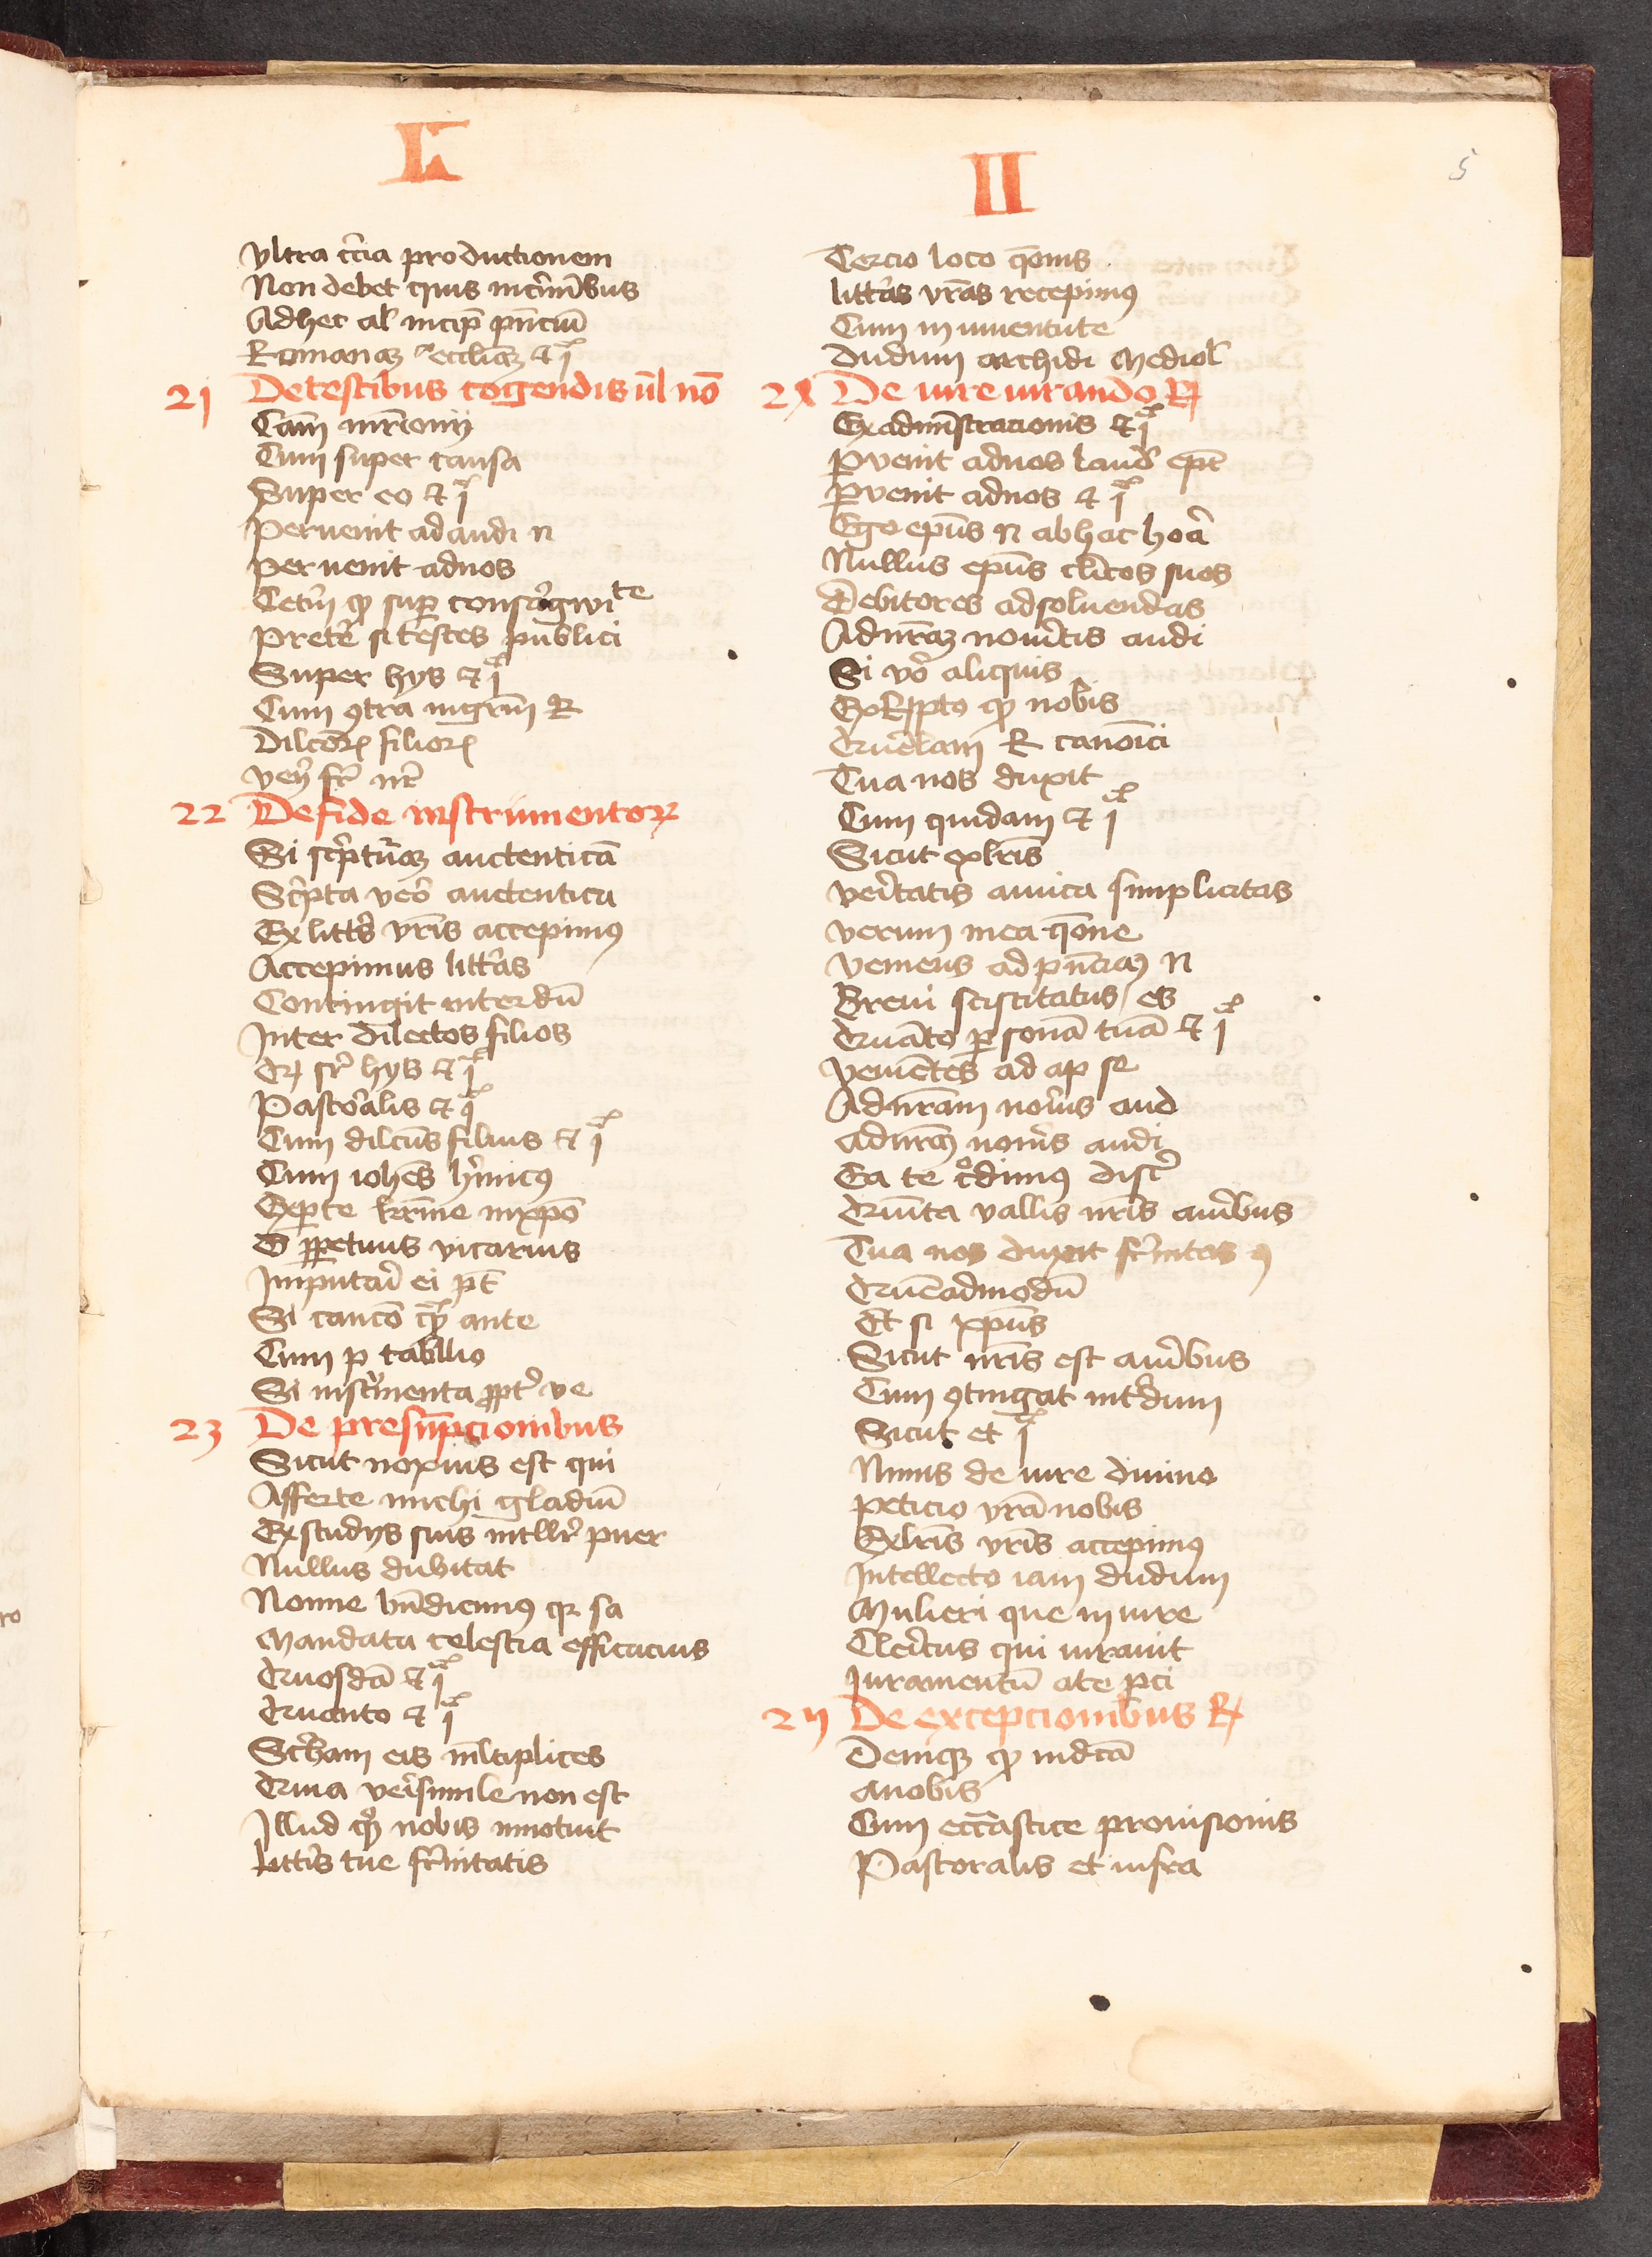 L
Vltra tc̄ia productionem
Non debet quis in cī̄ībus
Adhec al̄ incip̄ p̄nciū
Romanaꝫ eccliaꝫ et i
21 De testibus cogendis ul̄ nō
Cām mr̄ionij
Cum super causa
Super eo et i
Peruenit ad audi n
peruenit ad nos
Cetm̄ qꝫ suꝑ consāgwite
Preterˀ si testes publici
Super hys et i
Cum ꝯtra mgrm̄ R
Dilcōꝝ filioꝝ
ven̄ fr̄ nr̄
22 De fide instrumentoꝝ
Si sc̄ptūaꝫ auctenticā
Sc̄pta veō auctentica
Ex litteˀ vr̄is accepimꝰ
Accepimus litt̄as
Contingit interdū
Inter dilectos filios
hys et i
Pastoralis et i
Cum dilcūs filius et i
Cum ioh̄es h̄micꝰ
Exꝑte
O ꝑpetuus vicarius
Imputarˀ ei pt̄
Si caucō ante
Cum p tabllio
Si instˀmenta ꝓptˀ ve
23 De presūpcionibus
Sicut noxius est qui
Afferte michi gladiū
Ex studijs suis intllr̄ puer
Nullus dubitat
Nonne bn̄dicimꝰ qꝫ sa
Mandata celestia efficacius
Quosdā et i
Quanto et i
Sc̄bam eis ml̄tiplices
Quia veri̇simile non est
Illud qꝫ nobis innotuit
Litteris tue fr̄nitatis
II
5
Tercio loco q̄onis
litt̄as vr̄as recepimꝰ
Cum in iuuentute
Dudum archidi Mediol̄
2X De iure iurando R
Ex admīstracionis et i
ꝑvenit ad nos laud epc̄
ꝑvenit ad nos et i
Ego ep̄us N ab hac hoā
Nullus ep̄us cl̄icos suos
Debitores ad soluendas
Ad nr̄aꝫ noūitis audi
Si vō aliquis
qꝫ nobis
Querelam R canoīci
Tua nos duxit
Cum quidam et i
Sicut ex lr̄is
veritatis amica simplicitas
verum in ea q̄one
veniens ad pn̄ciaꝫ N
Breui sciscitatus es
Quāto ꝑsonā tuā et i
venientes ad ap se
Ad nr̄am noūis aud
Ad nr̄aꝫ noūis audi
Ea te cˀdimꝰ discˀ
Quīta vallis nr̄is auribus
Tua nos duxit fr̄nitas ꝯ
Quēadmodū
Et si xp̄us
Sicut nr̄is est auribus
Cum ꝯtingat interdum
Sicut et i
Nimis de iure diuino
peticio vr̄a nobis
Ex lr̄is vr̄is accepimꝰ
Intellecto iam dudum
Mulieri que in iure
Clericus qui iurauit
Iuramentū ate pci
2 De excepcionibus R
Deniqꝫ qꝫ in dc̄ā
A nobis
Cum eccāstice prouisionis
Pastoralis et infra